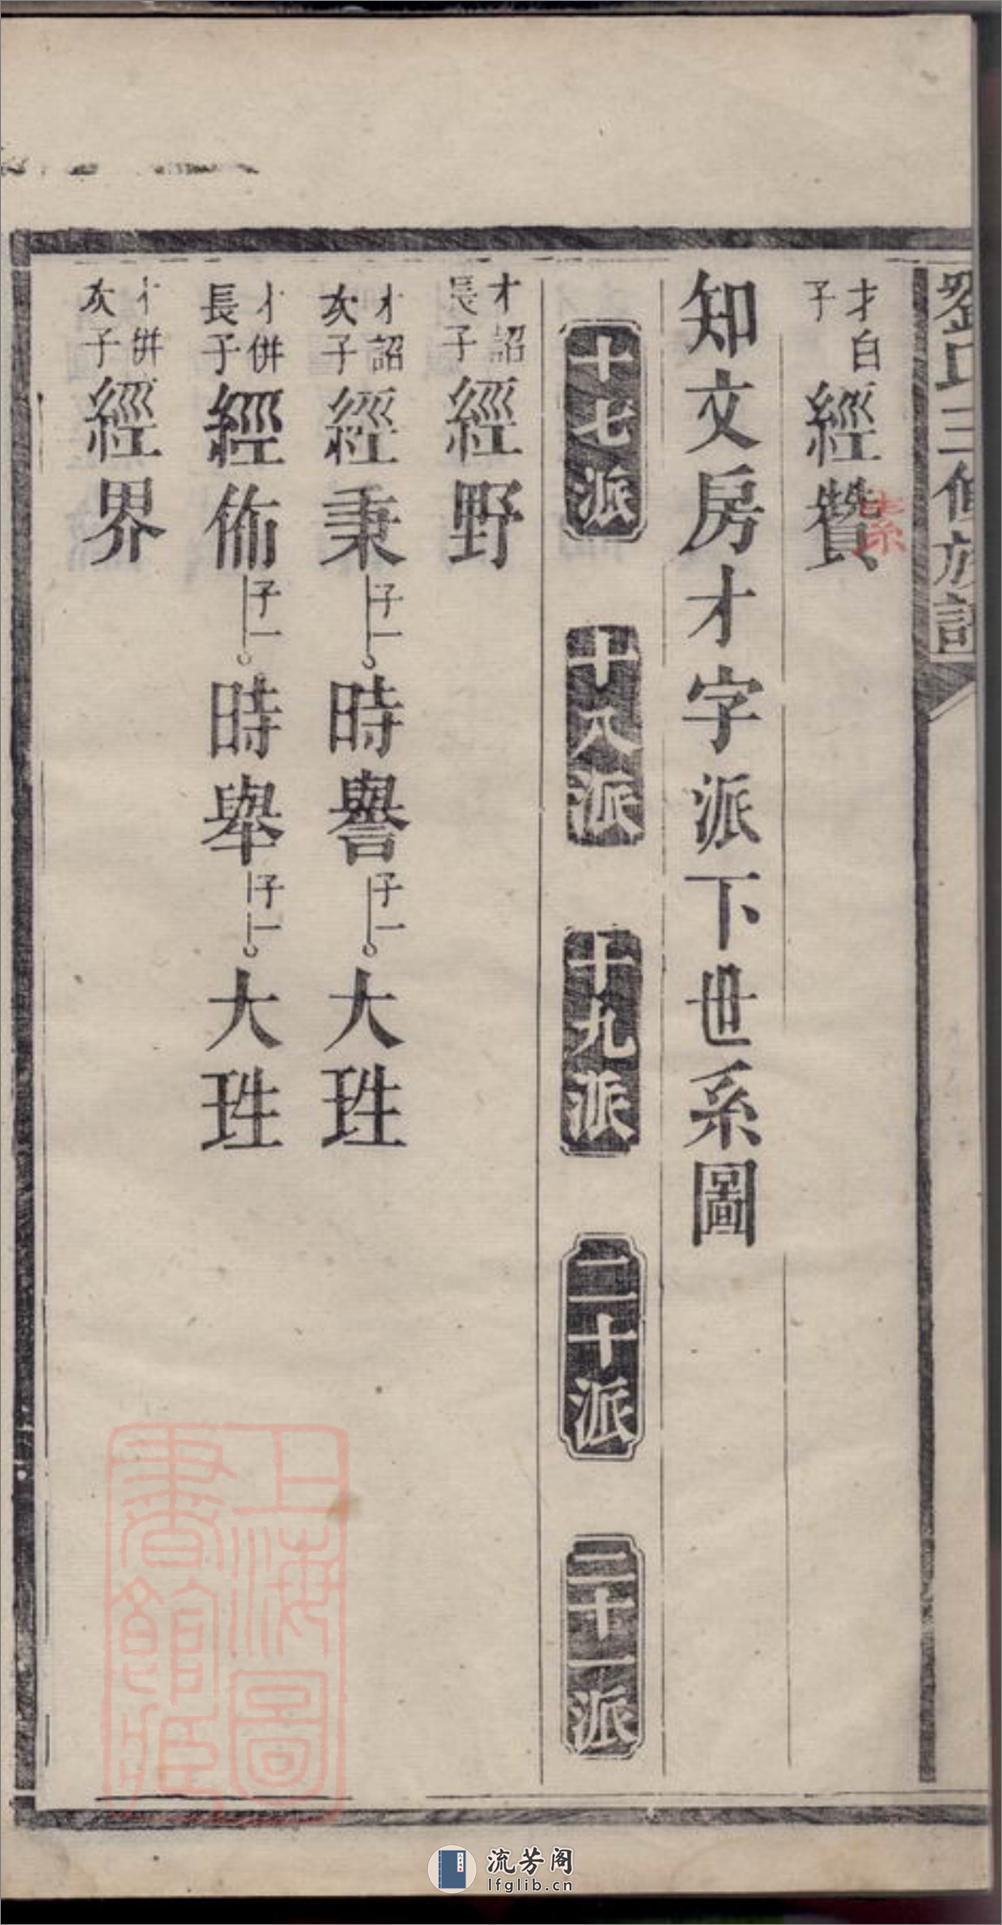 劉氏三修族譜
才白子 經贊
素
知文房才字派下世系圖
十七派 十八派 十九派 二十派 二十一派
才詔長子 經野
才詔次子 經秉 子一 時譽 子一 大珄
才併長子 經佈 子一 時舉 子一 大珄
才併次子 經界
上海圖書館藏
流芳阁
lfglib.cn